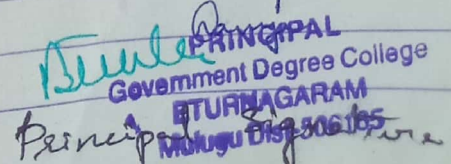 PRINCIPAL
Government Degree College
ETURNAGARAM
Mulugu Dist-506165
Principal Signature